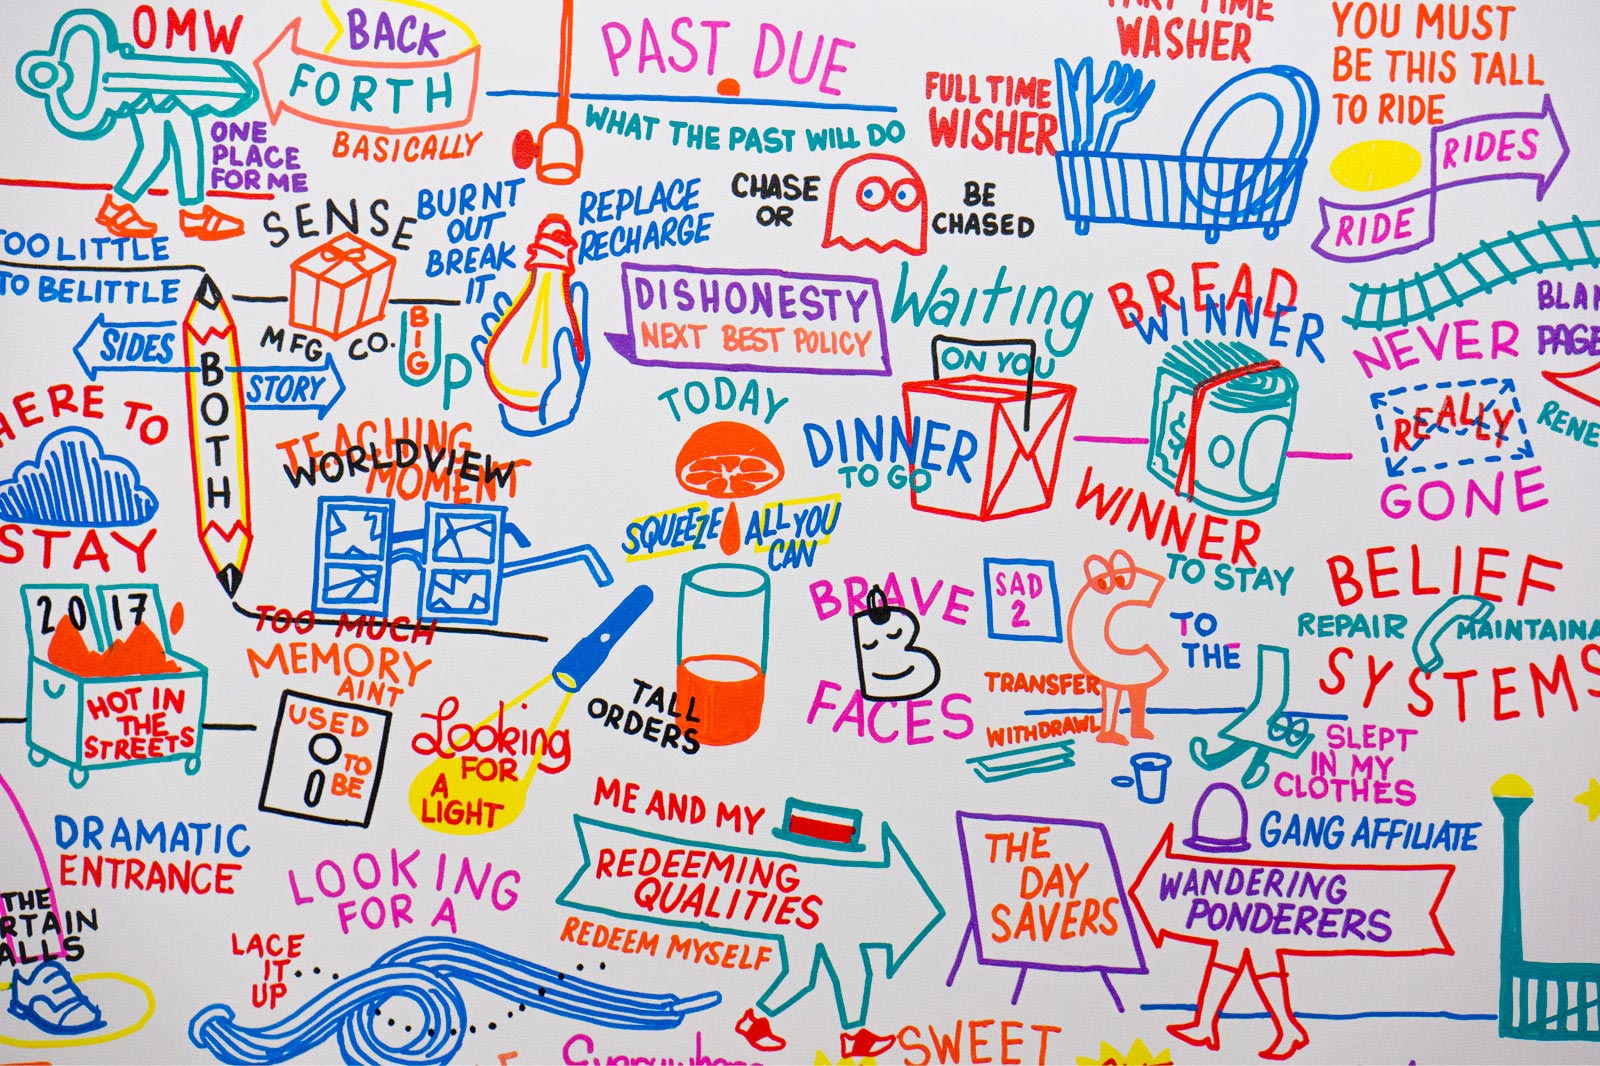 OMW
BACK
FORTH
BASICALLY
ONE
PLACE
FOR ME
PAST DUE
WHAT THE PAST WILL DO
CHASE
OR
BE
CHASED
WASHER
FULL TIME
WISHER
YOU MUST
BE THIS TALL
TO RIDE
RIDES
RIDE
TOO LITTLE
TO BELITTLE
SIDES
STORY
BOTH
SENSE
MFG. CO.
BURNT
OUT
BREAK
IT
BIG
UP
REPLACE
RECHARGE
DISHONESTY
NEXT BEST POLICY
Waiting
ON YOU
BREAD
WINNER
NEVER
REALLY
GONE
PAGE
HERE TO
STAY
TEACHING
MOMENT
WORLDVIEW
TODAY
SQUEEZE ALL YOU
CAN
DINNER
TO GO
WINNER
TO STAY
2017
HOT IN
THE
STREETS
TOO MUCH
MEMORY
AINT
USED
TO
BE
Looking
FOR
A
LIGHT
TALL
ORDERS
BRAVE
B
FACES
SAD
2
C
TRANSFER
WITHDRAWL
TO
THE
SLEPT
IN MY
CLOTHES
BELIEF
REPAIR
SYSTEMS
DRAMATIC
ENTRANCE
THE
LOOKING
FOR A
LACE
IT
UP
ME AND MY
REDEEMING
QUALITIES
REDEEM MYSELF
THE
DAY
SAVERS
GANG AFFILIATE
WANDERING
PONDERERS
SWEET
Everywhere